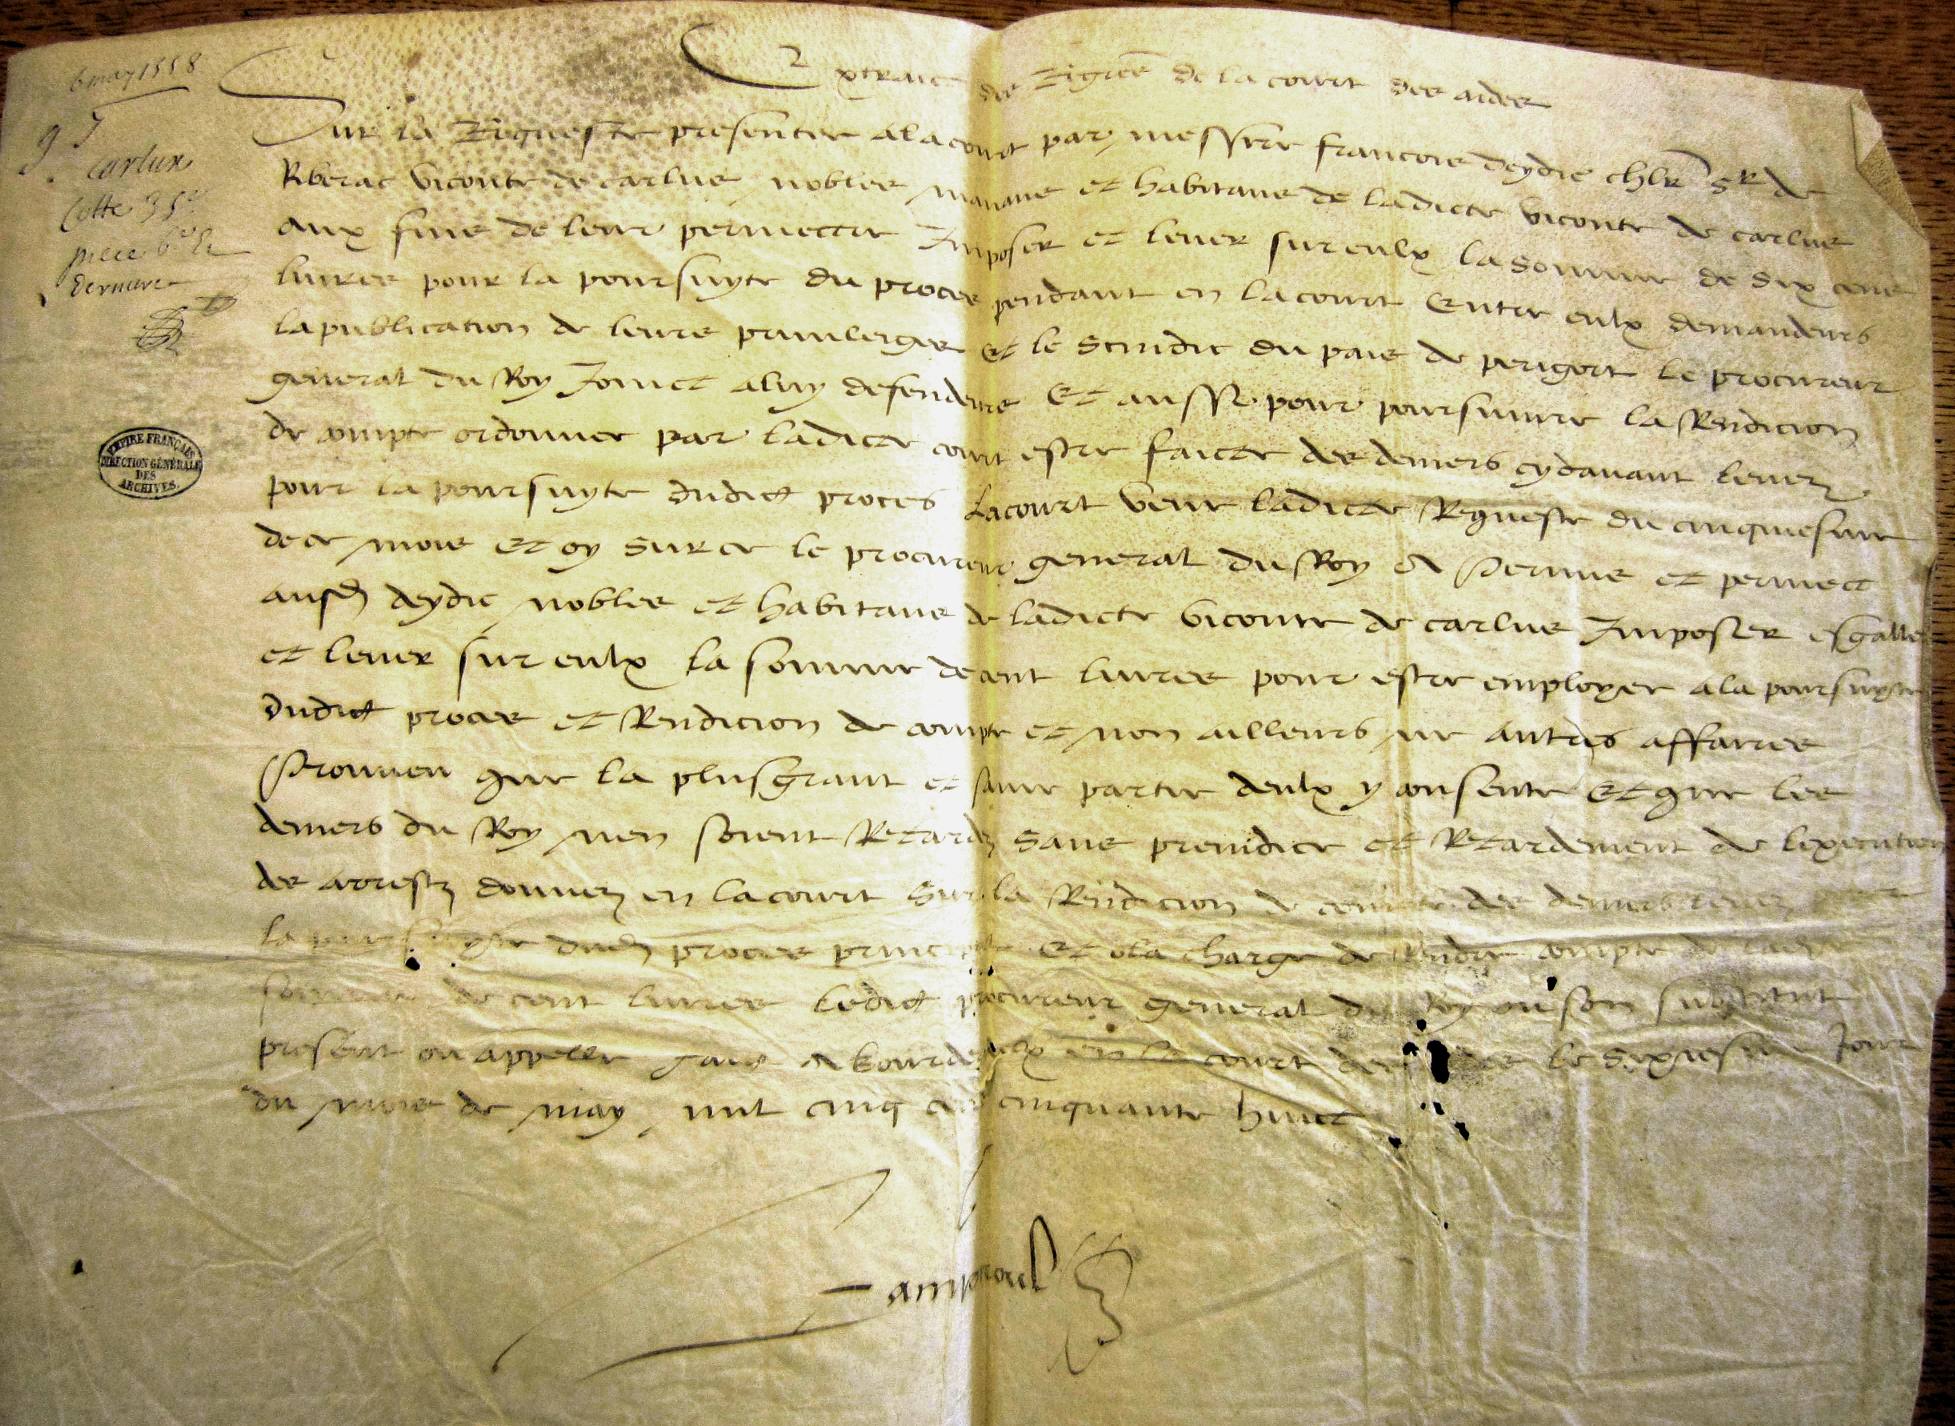 6 may 1558
Carlux
Cotte 35e
piece 6e et
derniere
EMPIRE FRANÇAIS
DIRECTION GÉNÉRALE
DES
ARCHIVES
Extraict des Registres de la court des aides
Sur la Requeste presentee a la court par messire francois deydie chlr sr de
Riberac viconte de carlus nobles manans et habitans de ladicte viconte de carlus
aux fins de leur permectre Imposer et lever sur eulx la somme de six cens
livres pour la poursuyte du proces pendant en la court Entre eulx demandeurs
la publication de leurs privileiges et le scindic du pais de perigort le procureur
general du Roy Joinct a luy defendeurs Et aussi pour poursuivre la Rendicion
de compte ordonnee par ladicte court estre faicte des deniers cy davant levez
pour la poursuyte dudict proces La court veue ladicte Requeste du cinquiesme
de ce mois et oy sur ce le procureur general du Roy a permis et permect
ausd deydie nobles et habitans de ladicte viconte de carlus Imposer esgaller
et lever sur eulx la somme de cent livres pour estre employee a la poursuyte
dudict proces et Rendicion de compte et non ailleurs ne autres affaires
Prouveu que la plus grant et saine partie deulx y consente Et que les
deniers du Roy nen soient Retardez sans preiudice et Retardement de lexecution
des arrestz donnez en la court sur la Rendicion de compte des deniers levez
la poursuyte dud proces principal Et a la charge de Rendre compte de ladicte
somme de cent livres ledict procureur general du Roy ou son substitut
present ou appelle faict a bourdeaulx en la court des aides le sixiesme Jour
du mois de may mil cinq cens cinquante huict